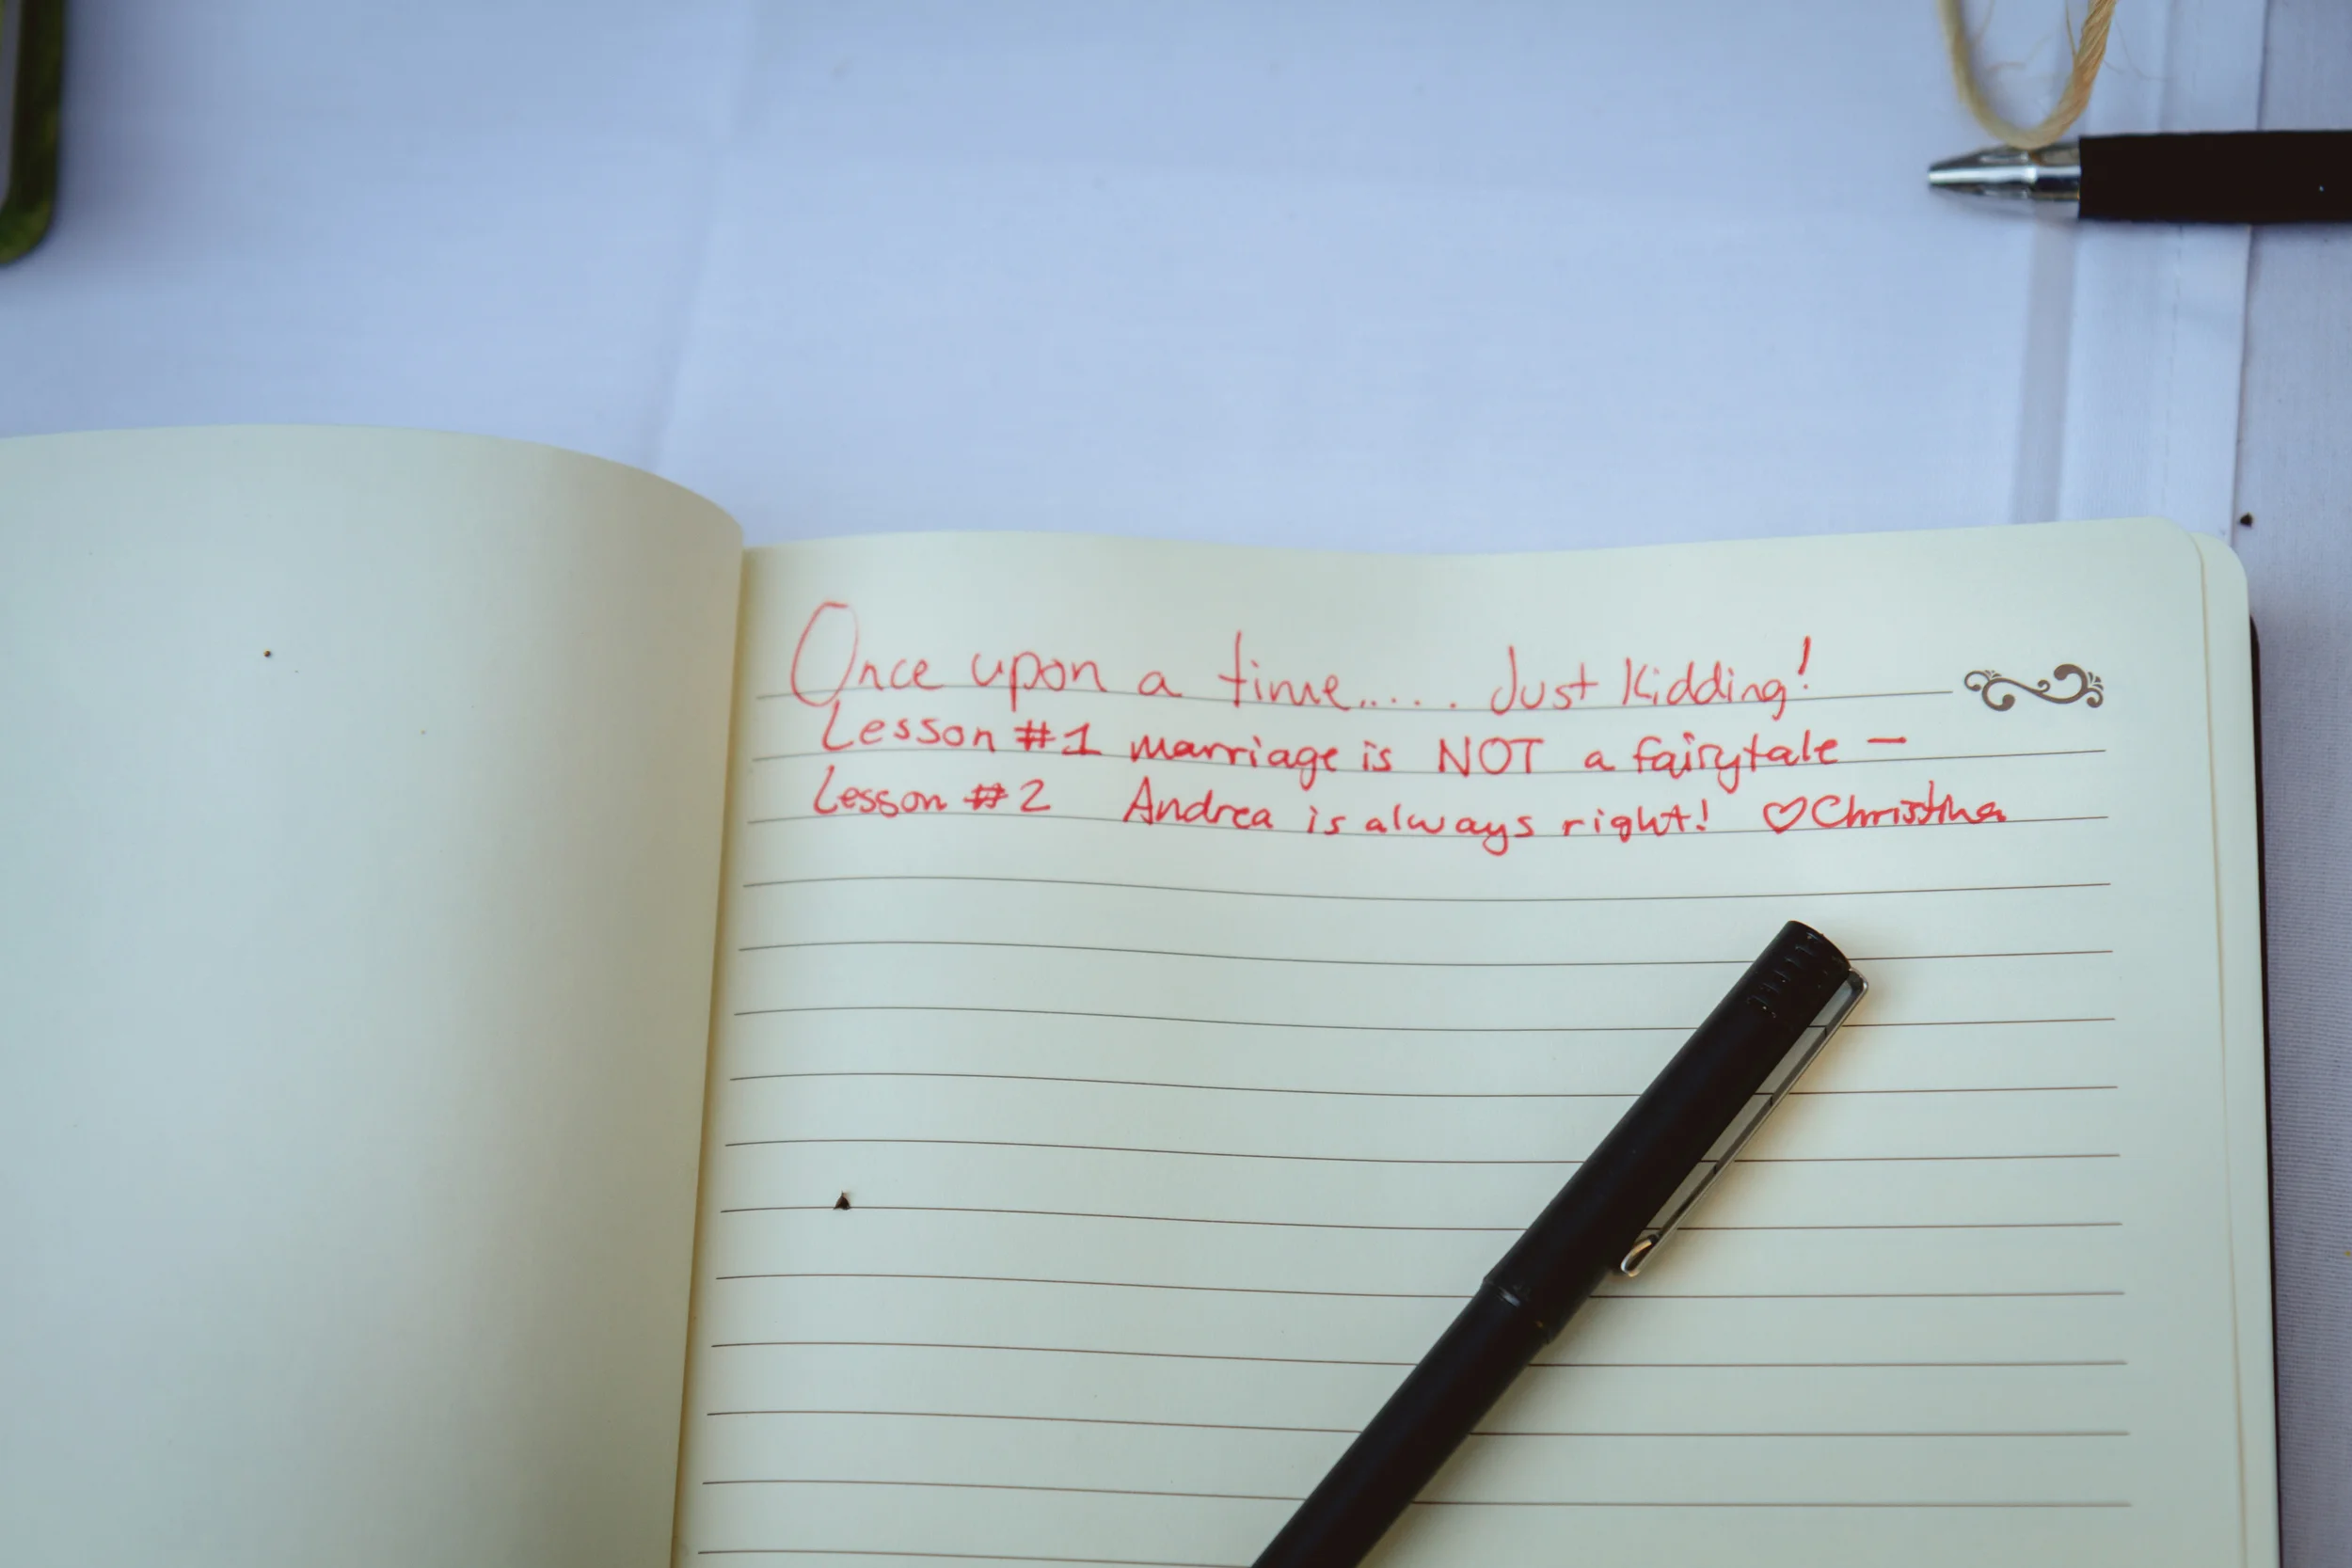 Once upon a time..... Just Kidding!
Lesson #1 marriage is NOT a fairytale —
Lesson #2 Andrea is always right! ♡Christina